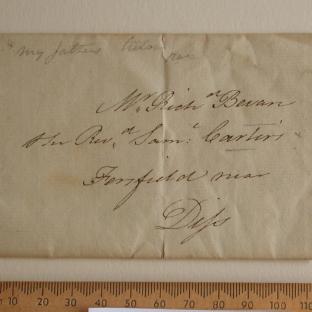 my father
Mr. Richd. Bevan
Revd. Saml. Carter's
Fersfield near
Diss
10 20 30 40 50 60 70 80 90 100 110